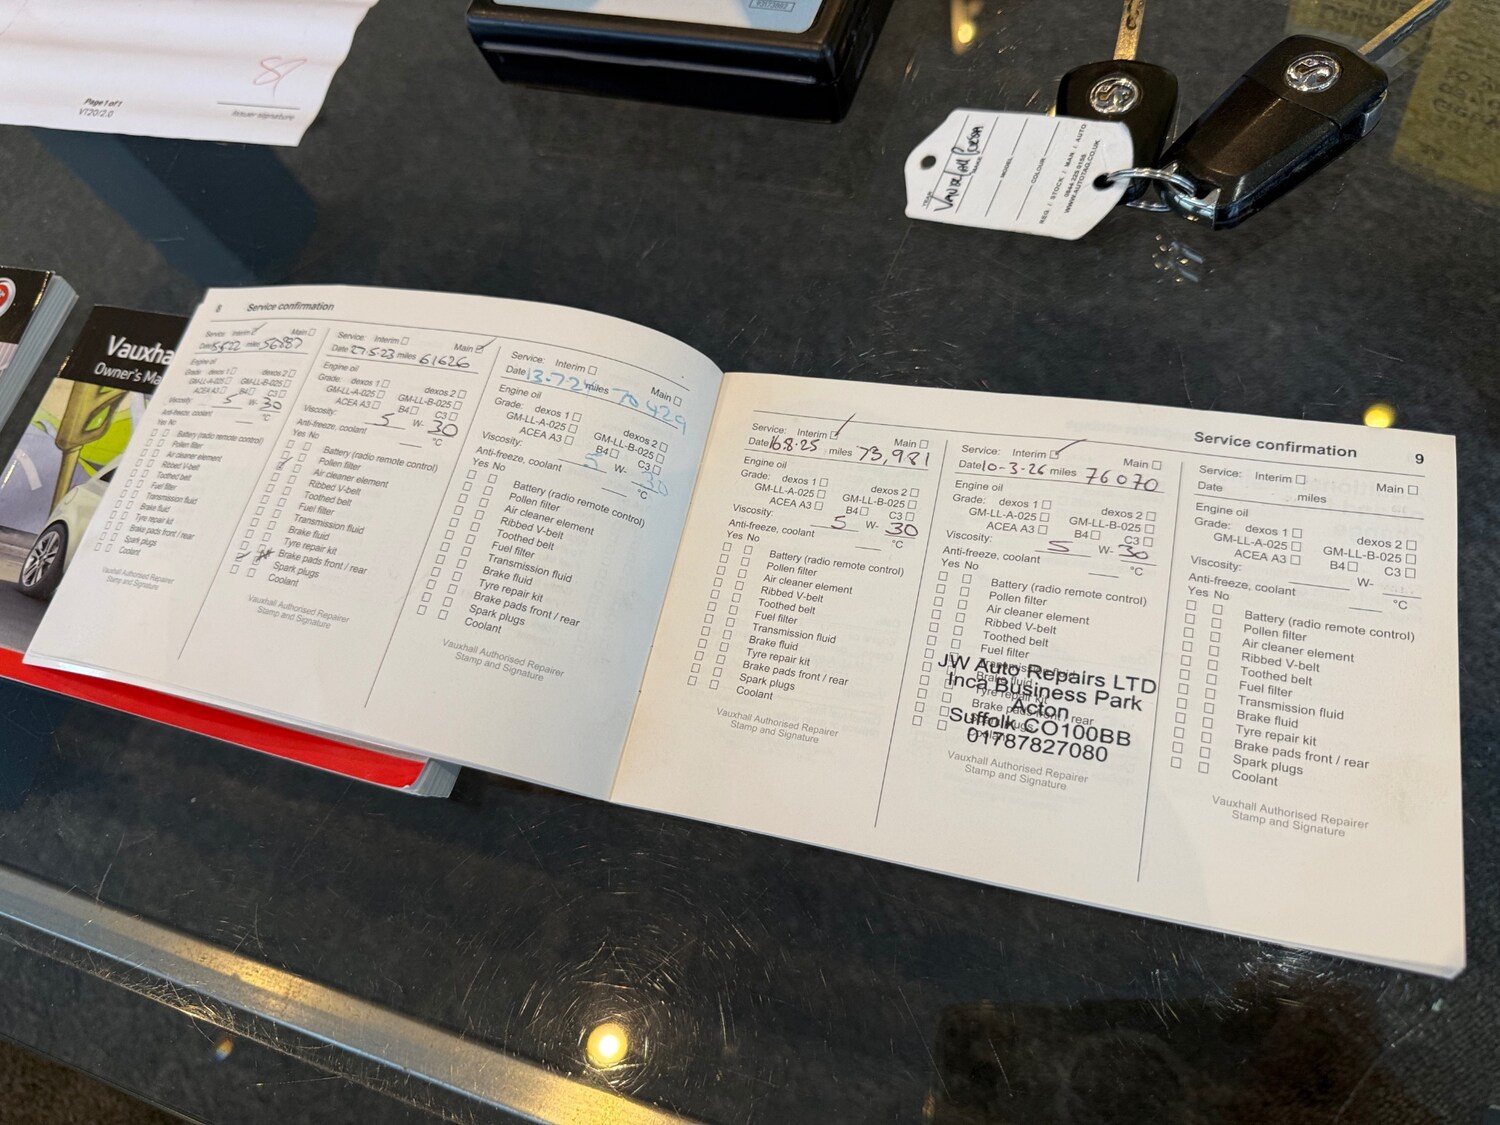 Page 1 of 1
VT20/2.0
Issuer signature
VAUXHALL CORSA
MODEL
COLOUR
REG. / STOCK / MAN. / AUTO
WWW.AUTOTAG.CO.UK
Vauxha
Owner's Ma
8 Service confirmation
Service: Interim Main
Date 5.5.22 miles 56887
Engine oil
Grade: dexos 1 dexos 2
GM-LL-A-025 GM-LL-B-025
ACEA A3 B4 C3
Viscosity: 5 W- 30
Anti-freeze, coolant °C
Yes No
Battery (radio remote control)
Pollen filter
Air cleaner element
Ribbed V-belt
Toothed belt
Fuel filter
Transmission fluid
Brake fluid
Tyre repair kit
Brake pads front / rear
Spark plugs
Coolant
Vauxhall Authorised Repairer
Stamp and Signature
Service: Interim Main
Date 27.5.23 miles 61626
Engine oil
Grade: dexos 1 dexos 2
GM-LL-A-025 GM-LL-B-025
ACEA A3 B4 C3
Viscosity: 5 W- 30
Anti-freeze, coolant °C
Yes No
Battery (radio remote control)
Pollen filter
Air cleaner element
Ribbed V-belt
Toothed belt
Fuel filter
Transmission fluid
Brake fluid
Tyre repair kit
Brake pads front / rear
Spark plugs
Coolant
Vauxhall Authorised Repairer
Stamp and Signature
Service: Interim Main
Date 13-7-24 miles 70429
Engine oil
Grade: dexos 1 dexos 2
GM-LL-A-025 GM-LL-B-025
ACEA A3 B4 C3
Viscosity: 5 W- 30
Anti-freeze, coolant °C
Yes No
Battery (radio remote control)
Pollen filter
Air cleaner element
Ribbed V-belt
Toothed belt
Fuel filter
Transmission fluid
Brake fluid
Tyre repair kit
Brake pads front / rear
Spark plugs
Coolant
Vauxhall Authorised Repairer
Stamp and Signature
Service confirmation 9
Service: Interim Main
Date 16.8.25 miles 73,981
Engine oil
Grade: dexos 1 dexos 2
GM-LL-A-025 GM-LL-B-025
ACEA A3 B4 C3
Viscosity: 5 W- 30
Anti-freeze, coolant °C
Yes No
Battery (radio remote control)
Pollen filter
Air cleaner element
Ribbed V-belt
Toothed belt
Fuel filter
Transmission fluid
Brake fluid
Tyre repair kit
Brake pads front / rear
Spark plugs
Coolant
Vauxhall Authorised Repairer
Stamp and Signature
Service: Interim Main
Date 10-3-26 miles 76070
Engine oil
Grade: dexos 1 dexos 2
GM-LL-A-025 GM-LL-B-025
ACEA A3 B4 C3
Viscosity: 5 W- 30
Anti-freeze, coolant °C
Yes No
Battery (radio remote control)
Pollen filter
Air cleaner element
Ribbed V-belt
Toothed belt
Fuel filter
Transmission fluid
Brake fluid
Tyre repair kit
Brake pads front / rear
Spark plugs
Coolant
JW Auto Repairs LTD
Inca Business Park
Acton
Suffolk CO100BB
01787827080
Vauxhall Authorised Repairer
Stamp and Signature
Service: Interim Main
Date miles
Engine oil
Grade: dexos 1 dexos 2
GM-LL-A-025 GM-LL-B-025
ACEA A3 B4 C3
Viscosity: W-
Anti-freeze, coolant °C
Yes No
Battery (radio remote control)
Pollen filter
Air cleaner element
Ribbed V-belt
Toothed belt
Fuel filter
Transmission fluid
Brake fluid
Tyre repair kit
Brake pads front / rear
Spark plugs
Coolant
Vauxhall Authorised Repairer
Stamp and Signature